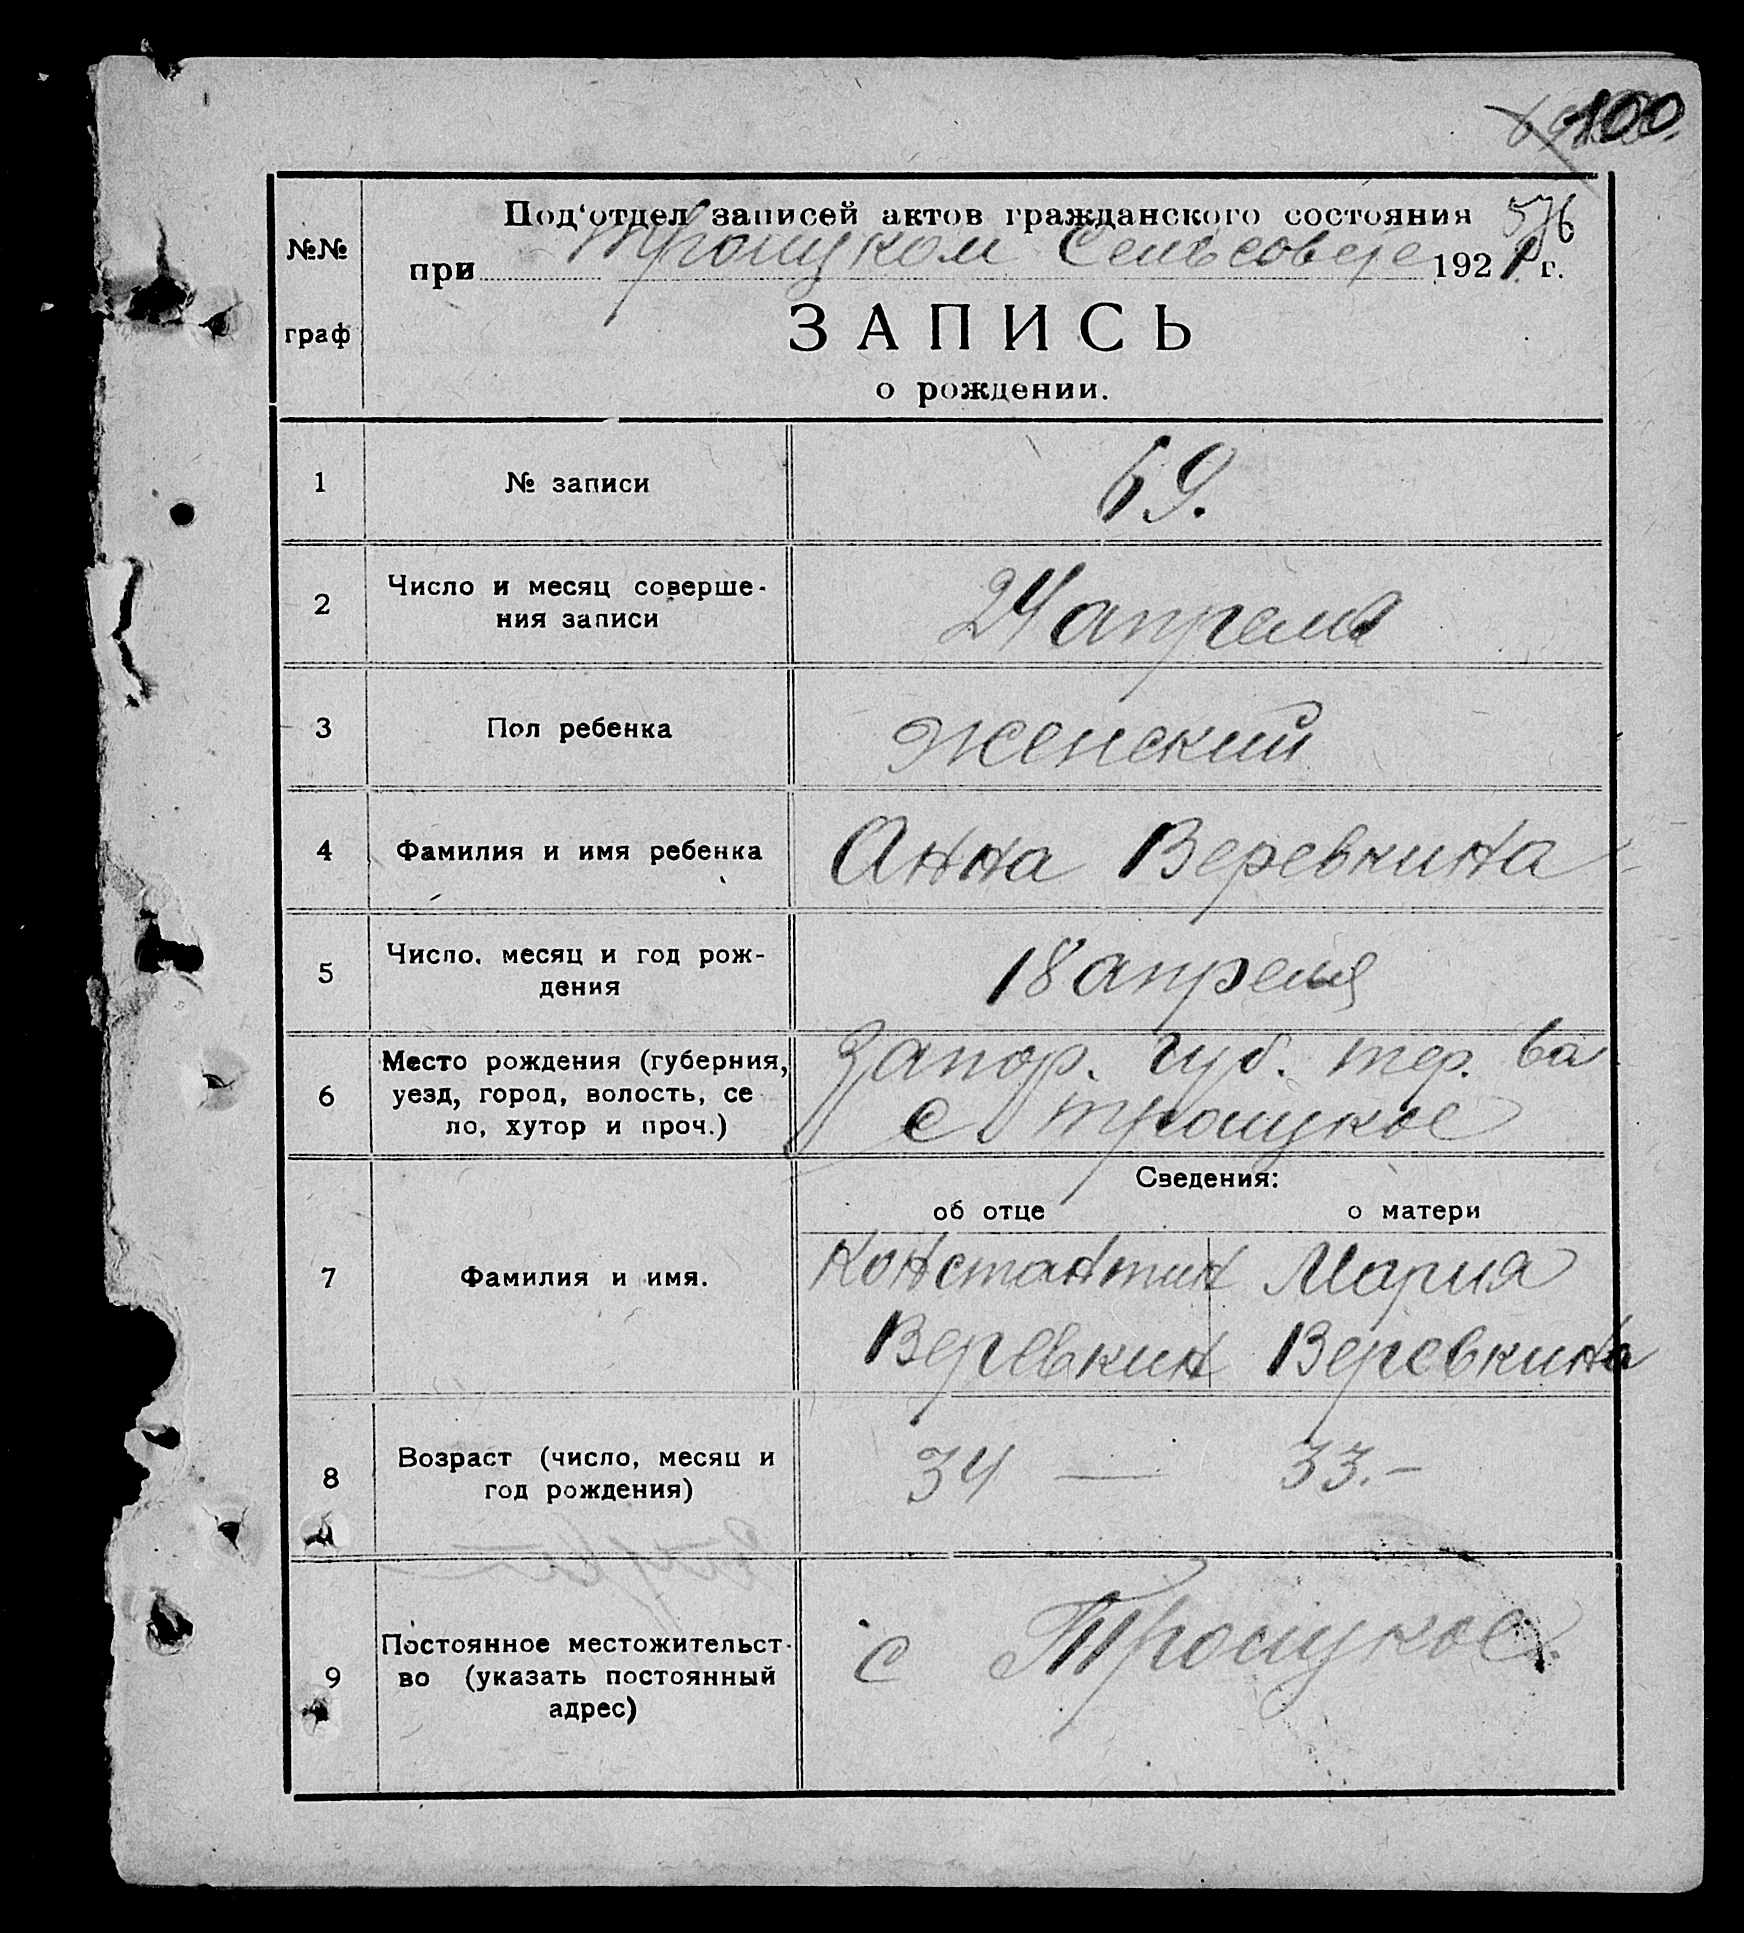 100
576
Под‘отдел записей актов гражданского состояния
при Троицком Сельсовете 1921 г.
№№
граф
ЗАПИСЬ
о рождении.
1 № записи 69.
2 Число и месяц соверше-
ния записи 24 апреля
3 Пол ребенка женский
4 Фамилия и имя ребенка Анна Веревкина
5 Число, месяц и год рож-
дения 18 апреля
6 Место рождения (губерния, Запор. губ. тер. ва
уезд, город, волость, се с Троицкое
ло, хутор и проч.)
Сведения:
об отце о матери
7 Фамилия и имя. Константин Мария
Веревкин Веревкина
8 Возраст (число, месяц и
год рождения) 34 — 33.-
9 Постоянное местожительст-
во (указать постоянный с Троицкое.
адрес)